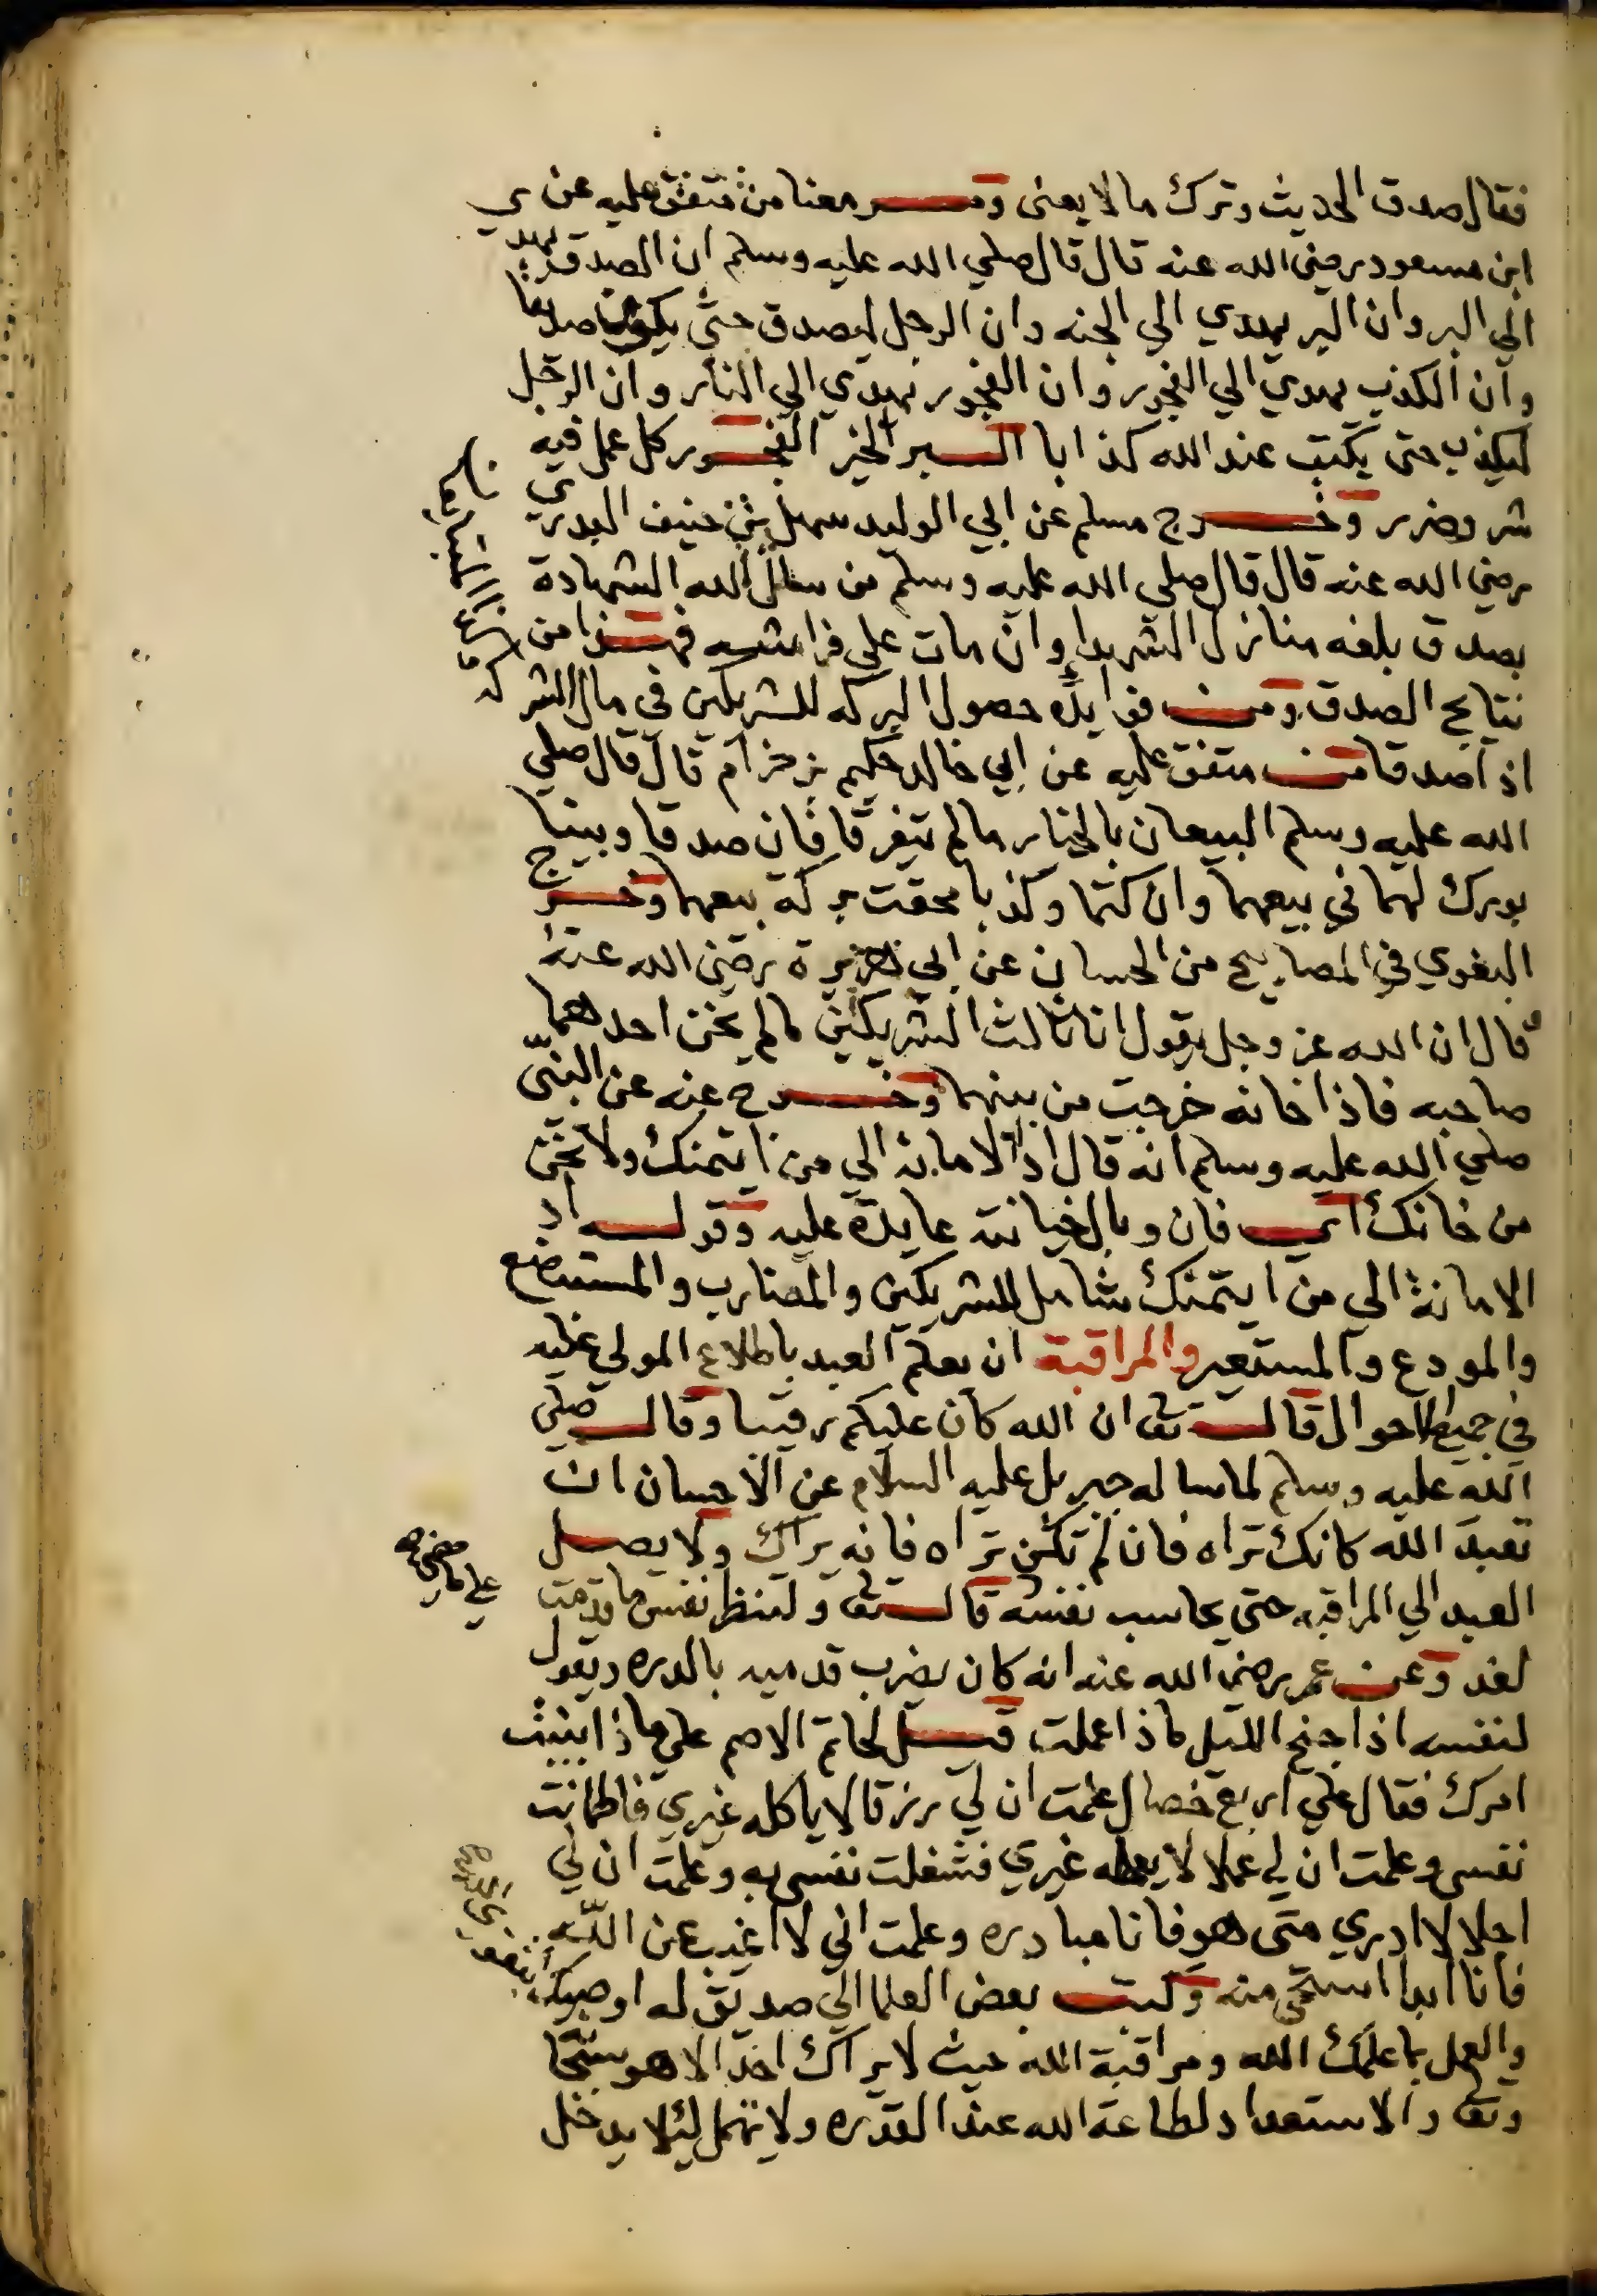 فقال صدق الحديث وترك ما لا يعنى ومـر معنا من متفق عليه عن
ابن مسعود رضي الله عنه قال قال صلي الله عليه وسلم ان الصدق يهدي
الي البر وان البر يهدي الي الجنه وان الرجل ليصدق حتي يكون صديقا
وان الكذب يهدي الي الفجور وان الفجور يهدي الي النار وان الرجل
ليكذب حتى يكتب عند الله كذابا البر الخير الفجور كل عمل فيه
شر وضرر وخرج مسلم عن ابي الوليد سهل بن حنيف البدري
رضي الله عنه قال قال صلي الله عليه وسلم من سال الله الشهادة
بصدق بلغه منازل الشهدا وان مات علي فراشه فهذا من
نتايج الصدق ومن فوايده حصول البركه للشريكين في مال الشركه
اذا صدقا من متفق عليه عن ابي خالد حكيم بن حزام قال قال صلي
الله عليه وسلم البيعان بالخيار ما لم يتفرقا فان صدقا وبينا
بورك لهما في بيعهما وان كتما وكذبا محقت بركة بيعهما وخرج
البغوي في المصابيح من الحسان عن ابي هريرة رضي الله عنه
قال ان الله عز وجل يقول انا ثالث الشريكين ما لم يخن احدهما
صاحبه فاذا خانه خرجت من بينهما وخرج عنه عن النبي
صلي الله عليه وسلم انه قال اد الامانة الي من ائتمنك ولا تخن
من خانك اي فان وبال خيانته عايدة عليه وقوله اد
الامانة الي من ايتمنك شامل للشريكين والمضارب والمستبضع
والمودع والمستعير والمراقبة ان يعلم العبد باطلاع المولي عليه
في جميع الاحوال قال تعا ان الله كان عليكم رقيبا وقال صلي
الله عليه وسلم لما ساله جبريل عليه السلام عن الاحسان ان
تعبد الله كانك تراه فان لم تكن تراه فانه يراك ولا يصل
العبد الي المراقبه حتى يحاسب نفسه قال تعا ولتنظر نفس ما قدمت
لغد وعن عمر رضي الله عنه انه كان يضرب قدميه بالدره ويقول
لنفسه اذا جنح الليل ماذا عملت قيل لحاتم الاصم علي ماذا بنيت
امرك فقال علي اربع خصال علمت ان لي رزقا لا ياكله غيري فاطمانت
نفسي وعلمت ان لي عملا لا يعمله غيري فشغلت نفسي به وعلمت ان لي
اجلا لا ادري متى هو فانا مبادره وعلمت اني لا اغيب عن الله
فانا ابدا استحي منه وكتب بعض العلما الي صديق له اوصيك بتقوى
والعمل بما علمك الله ومراقبة الله حيث لا يراك احد الا هو سبحا
وتعا والاستعداد لطاعة الله عند القدره ولا تهمل لئلا يدخل